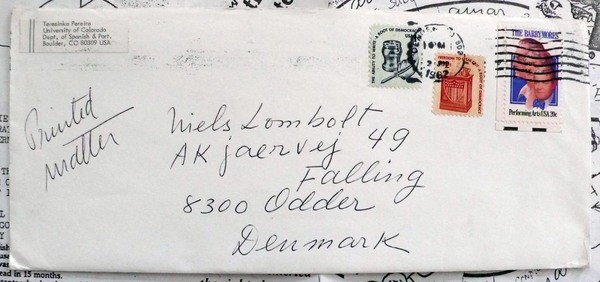 Teresinka Pereira
University of Colorado
Dept. of Spanish & Port.
Boulder, CO 80309 USA
THE ABILITY TO WRITE. A ROOT OF DEMOCRACY
USA
FREEDOM TO
A ROOT OF DEMOCRACY
THE BARRYMORES
Performing Arts USA 20c
1982
Printed
matter
Niels Lombolt
AKjaervej 49
Falling
8300 Odder
Denmark
ead in 15 months.